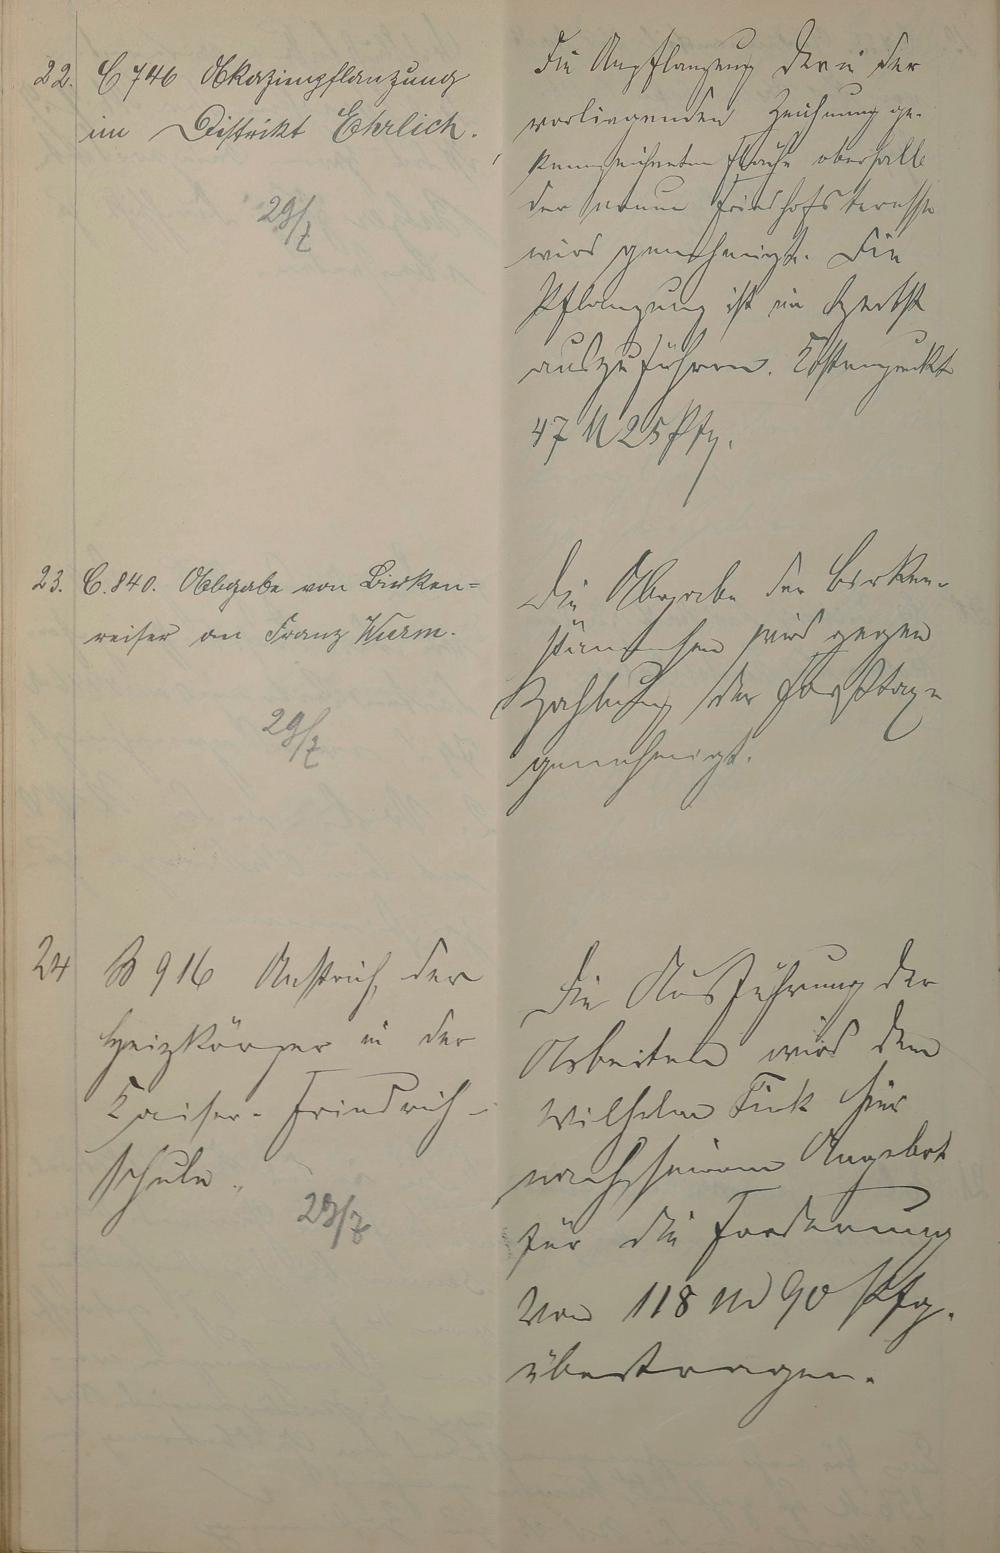 22. C 746 Akazienpflanzung
im Distrikt Ehrlich.
29/7
Die Anpflanzung der in der
vorliegenden Zeichnung ge-
kennzeichneten Fläche oberhalb
der neuen Friedhofsterasse
wird genehmigt. Die
Pflanzung ist im Herbst
auszuführen. Kostenpunkt
47 M 25 Pfg.
23. C. 840. Abgabe von Birken=
reiser an Franz Wurm.
29/7
Die Abgabe der Birken-
wird gegen
Zahlung der Forsttaxe
genehmigt.
24 B 916 Anstrich der
Heizkörper in der
Kaiser-Friedrich-
schule.
29/7
Die Ausführung der
Arbeiten wird dem
Wilhelm Fink hier
nach seinem Angebot
für die Forderung
von 118 M 90 Pfg.
übertragen.